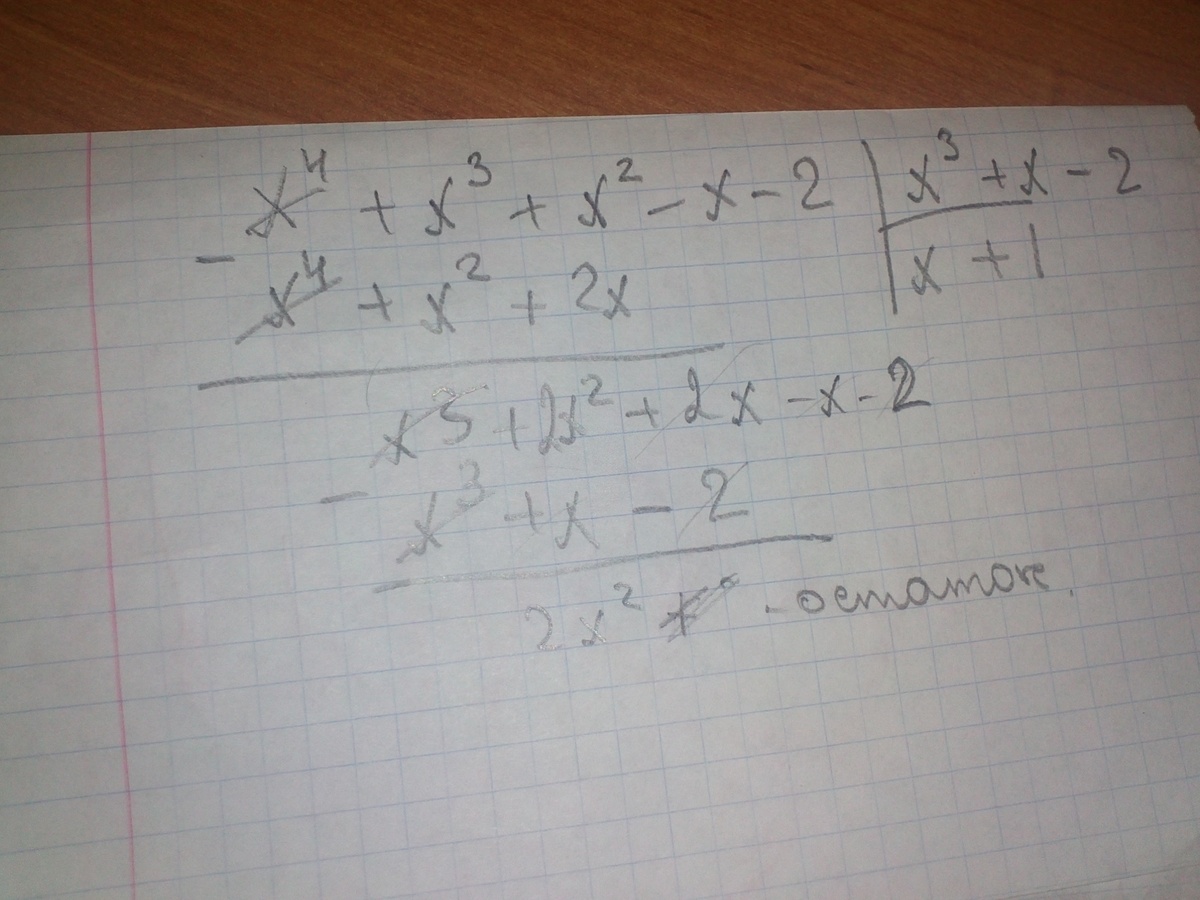 x⁴ + x³ + x² - x - 2 | x³ + x - 2
- x⁴ + x² + 2x | x + 1
x³ + 2x² + 2x - x - 2
- x³ + x - 2
2x² - остаток.